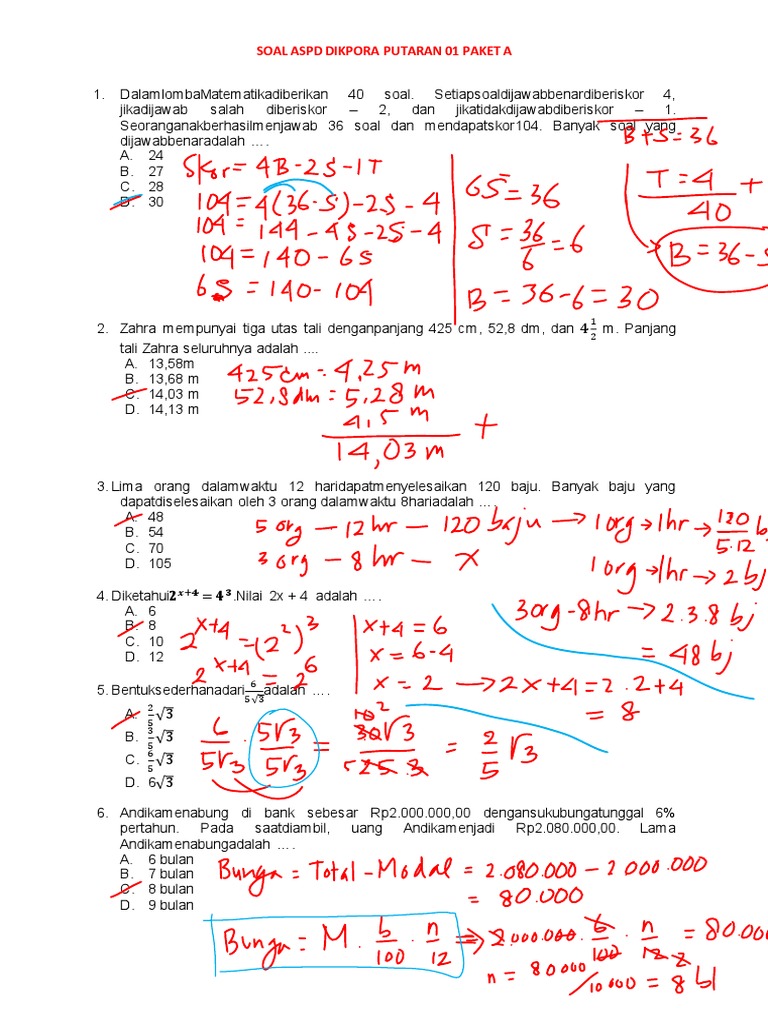 SOAL ASPD DIKPORA PUTARAN 01 PAKET A
1. DalamlombaMatematikadiberikan 40 soal. Setiapsoaldijawabbenardiberiskor 4,
jikadijawab salah diberiskor – 2, dan jikatidakdijawabdiberiskor – 1.
Seoranganakberhasilmenjawab 36 soal dan mendapatskor104. Banyak soal yang
dijawabbenaradalah ….
A. 24
B. 27
C. 28
D. 30
Skor = 4B - 2S - 1T
104 = 4(36-S) - 2S - 4
104 = 144 - 4S - 2S - 4
104 = 140 - 6S
6S = 140 - 104
6S = 36
S = 36/6 = 6
B = 36 - 6 = 30
B + S = 36
T = 4 +
40
B = 36 - S
2. Zahra mempunyai tiga utas tali denganpanjang 425 cm, 52,8 dm, dan 4 1/2 m. Panjang
tali Zahra seluruhnya adalah ....
A. 13,58m
B. 13,68 m
C. 14,03 m
D. 14,13 m
425 cm = 4,25 m
52,8 dm = 5,28 m
4,5 m +
14,03 m
3. Lima orang dalamwaktu 12 haridapatmenyelesaikan 120 baju. Banyak baju yang
dapatdiselesaikan oleh 3 orang dalamwaktu 8hariadalah …
A. 48
B. 54
C. 70
D. 105
5 org – 12 hr – 120 baju → 1 org → 1 hr → 120/5.12 b
3 org – 8 hr – x
1 org → 1 hr → 2 bj
3 org - 8 hr → 2.3.8 bj
= 48 bj
4. Diketahui 2^(x+4) = 4^3 .Nilai 2x + 4 adalah ….
A. 6
B. 8
C. 10
D. 12
2^(x+4) = (2^2)^3
2^(x+4) = 2^6
x + 4 = 6
x = 6 - 4
x = 2 → 2x + 4 = 2.2 + 4
= 8
5. Bentuksederhanadari 6/(5√3) adalah ….
A. 2/5 √3
B. 3/5 √3
C. 6/5 √3
D. 6√3
6/(5√3) . 5√3/(5√3) = 30√3/(25.3) = 2/5 √3
10 2
5
6. Andikamenabung di bank sebesar Rp2.000.000,00 dengansukubungatunggal 6%
pertahun. Pada saatdiambil, uang Andikamenjadi Rp2.080.000,00. Lama
Andikamenabungadalah ….
A. 6 bulan
B. 7 bulan
C. 8 bulan
D. 9 bulan
Bunga = Total - Modal = 2.080.000 - 2 000.000
= 80.000
Bunga = M . b/100 . n/12 ⇒ 2.000.000 . 6/100 . n/12 = 80.000
2
n = 80 000/10 000 = 8 bl